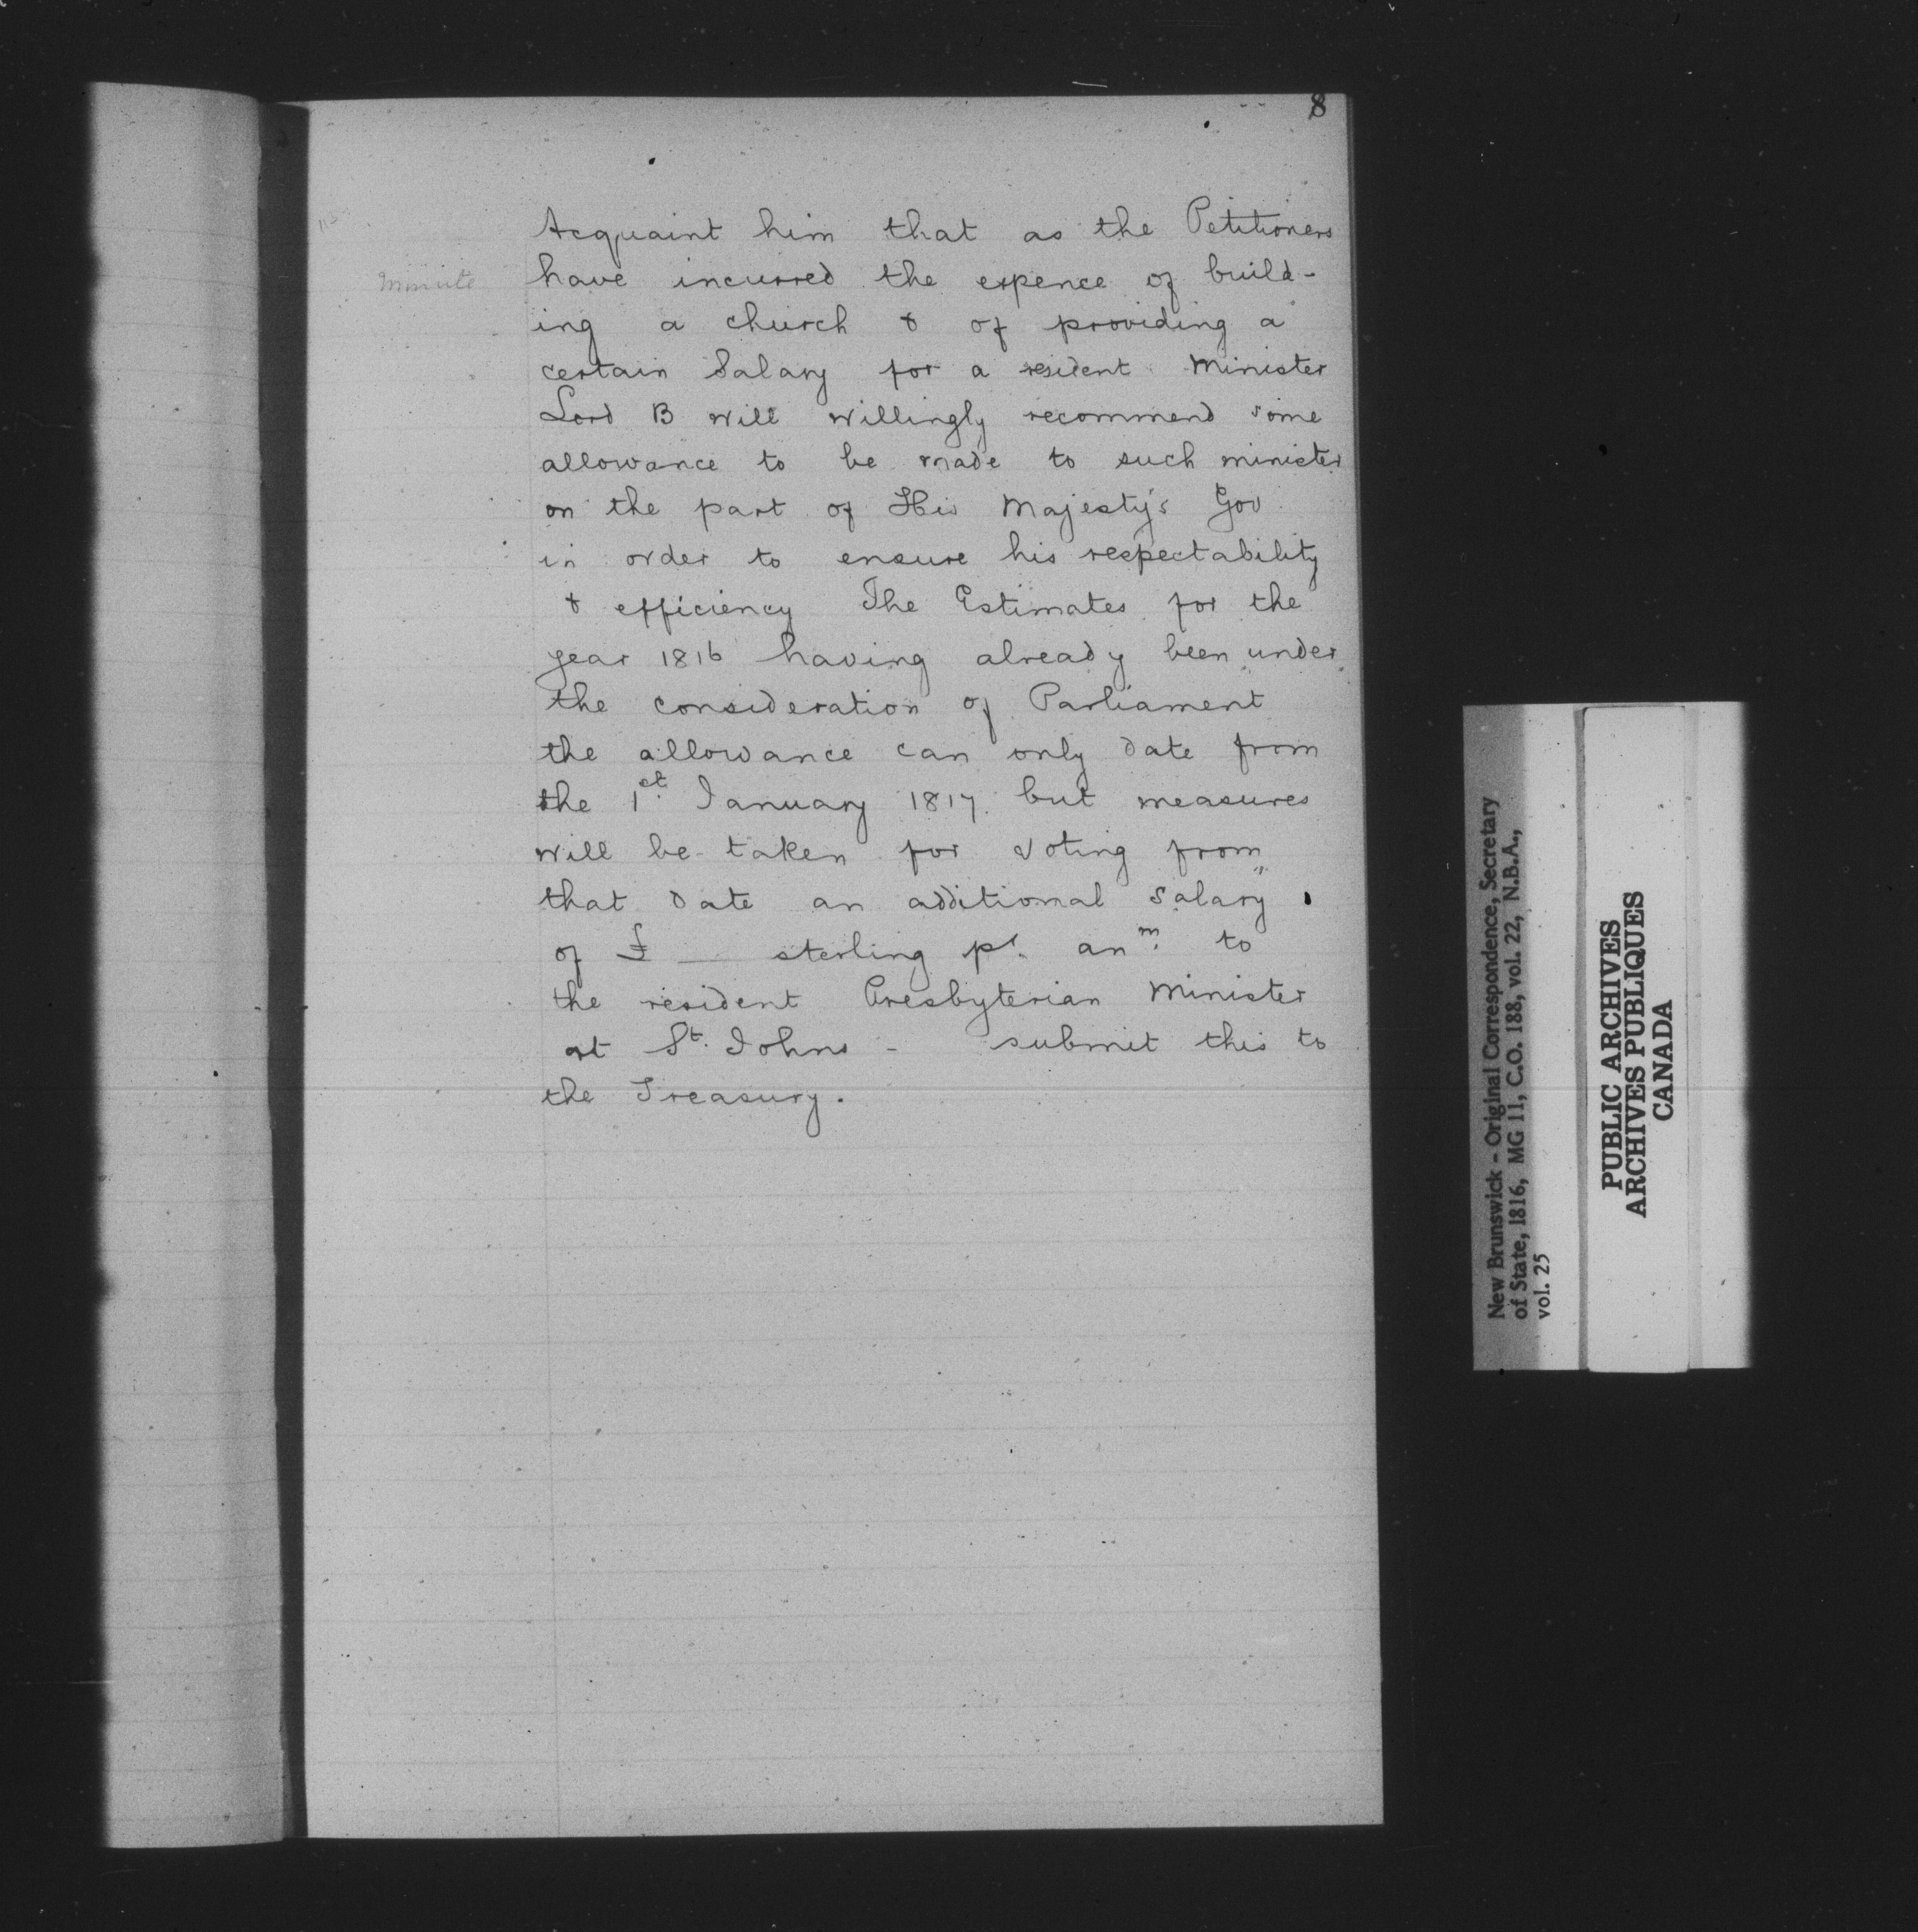 8
Minute
Acquaint him that as the Petitioners
have incurred the expence of build-
ing a church & of providing a
certain Salary for a resident Minister
Lord B will willingly recommend some
allowance to be made to such minister
on the part of His Majesty's Gov
in order to ensure his respectability
& efficiency The Estimates for the
year 1816 having already been under
the consideration of Parliament
the allowance can only date from
the 1st. January 1817. but measures
will be taken for voting from
that date an additional salary
of £ __ sterling pr. anm. to
the resident Presbyterian Minister
at St. Johns - submit this to
the Treasury.
New Brunswick - Original Correspondence, Secretary
of State, 1816, MG 11, C.O. 188, vol. 22, N.B.A.,
vol. 25
PUBLIC ARCHIVES
ARCHIVES PUBLIQUES
CANADA